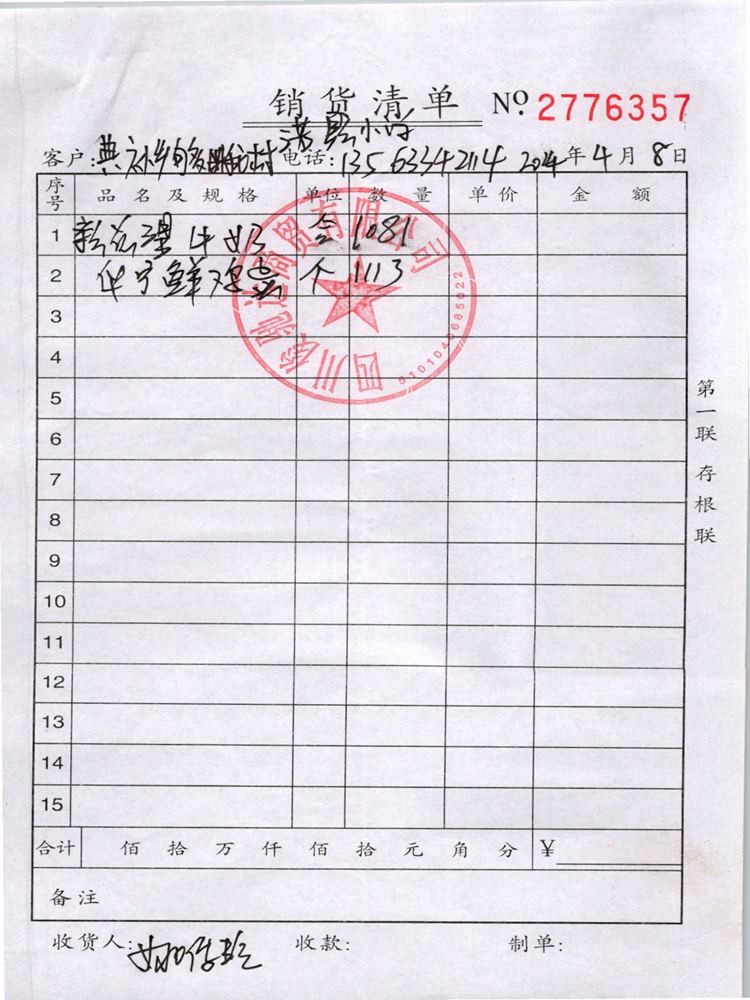 销货清单 No. 2776357
小学
客户: 典补乡 村 电话: 13563342114 2024年4月8日
序号 品名及规格 单位 数量 单价 金额
1 新希望牛奶 合 1081
2 华宁鲜鸡蛋 个 1113
3
4
5
6
7
8
9
10
11
12
13
14
15
合计 佰 拾 万 仟 佰 拾 元 角 分 ¥
备注
收货人: 收款: 制单:
第一联 存根联
四川 驰达商贸有限公司
5101046685022